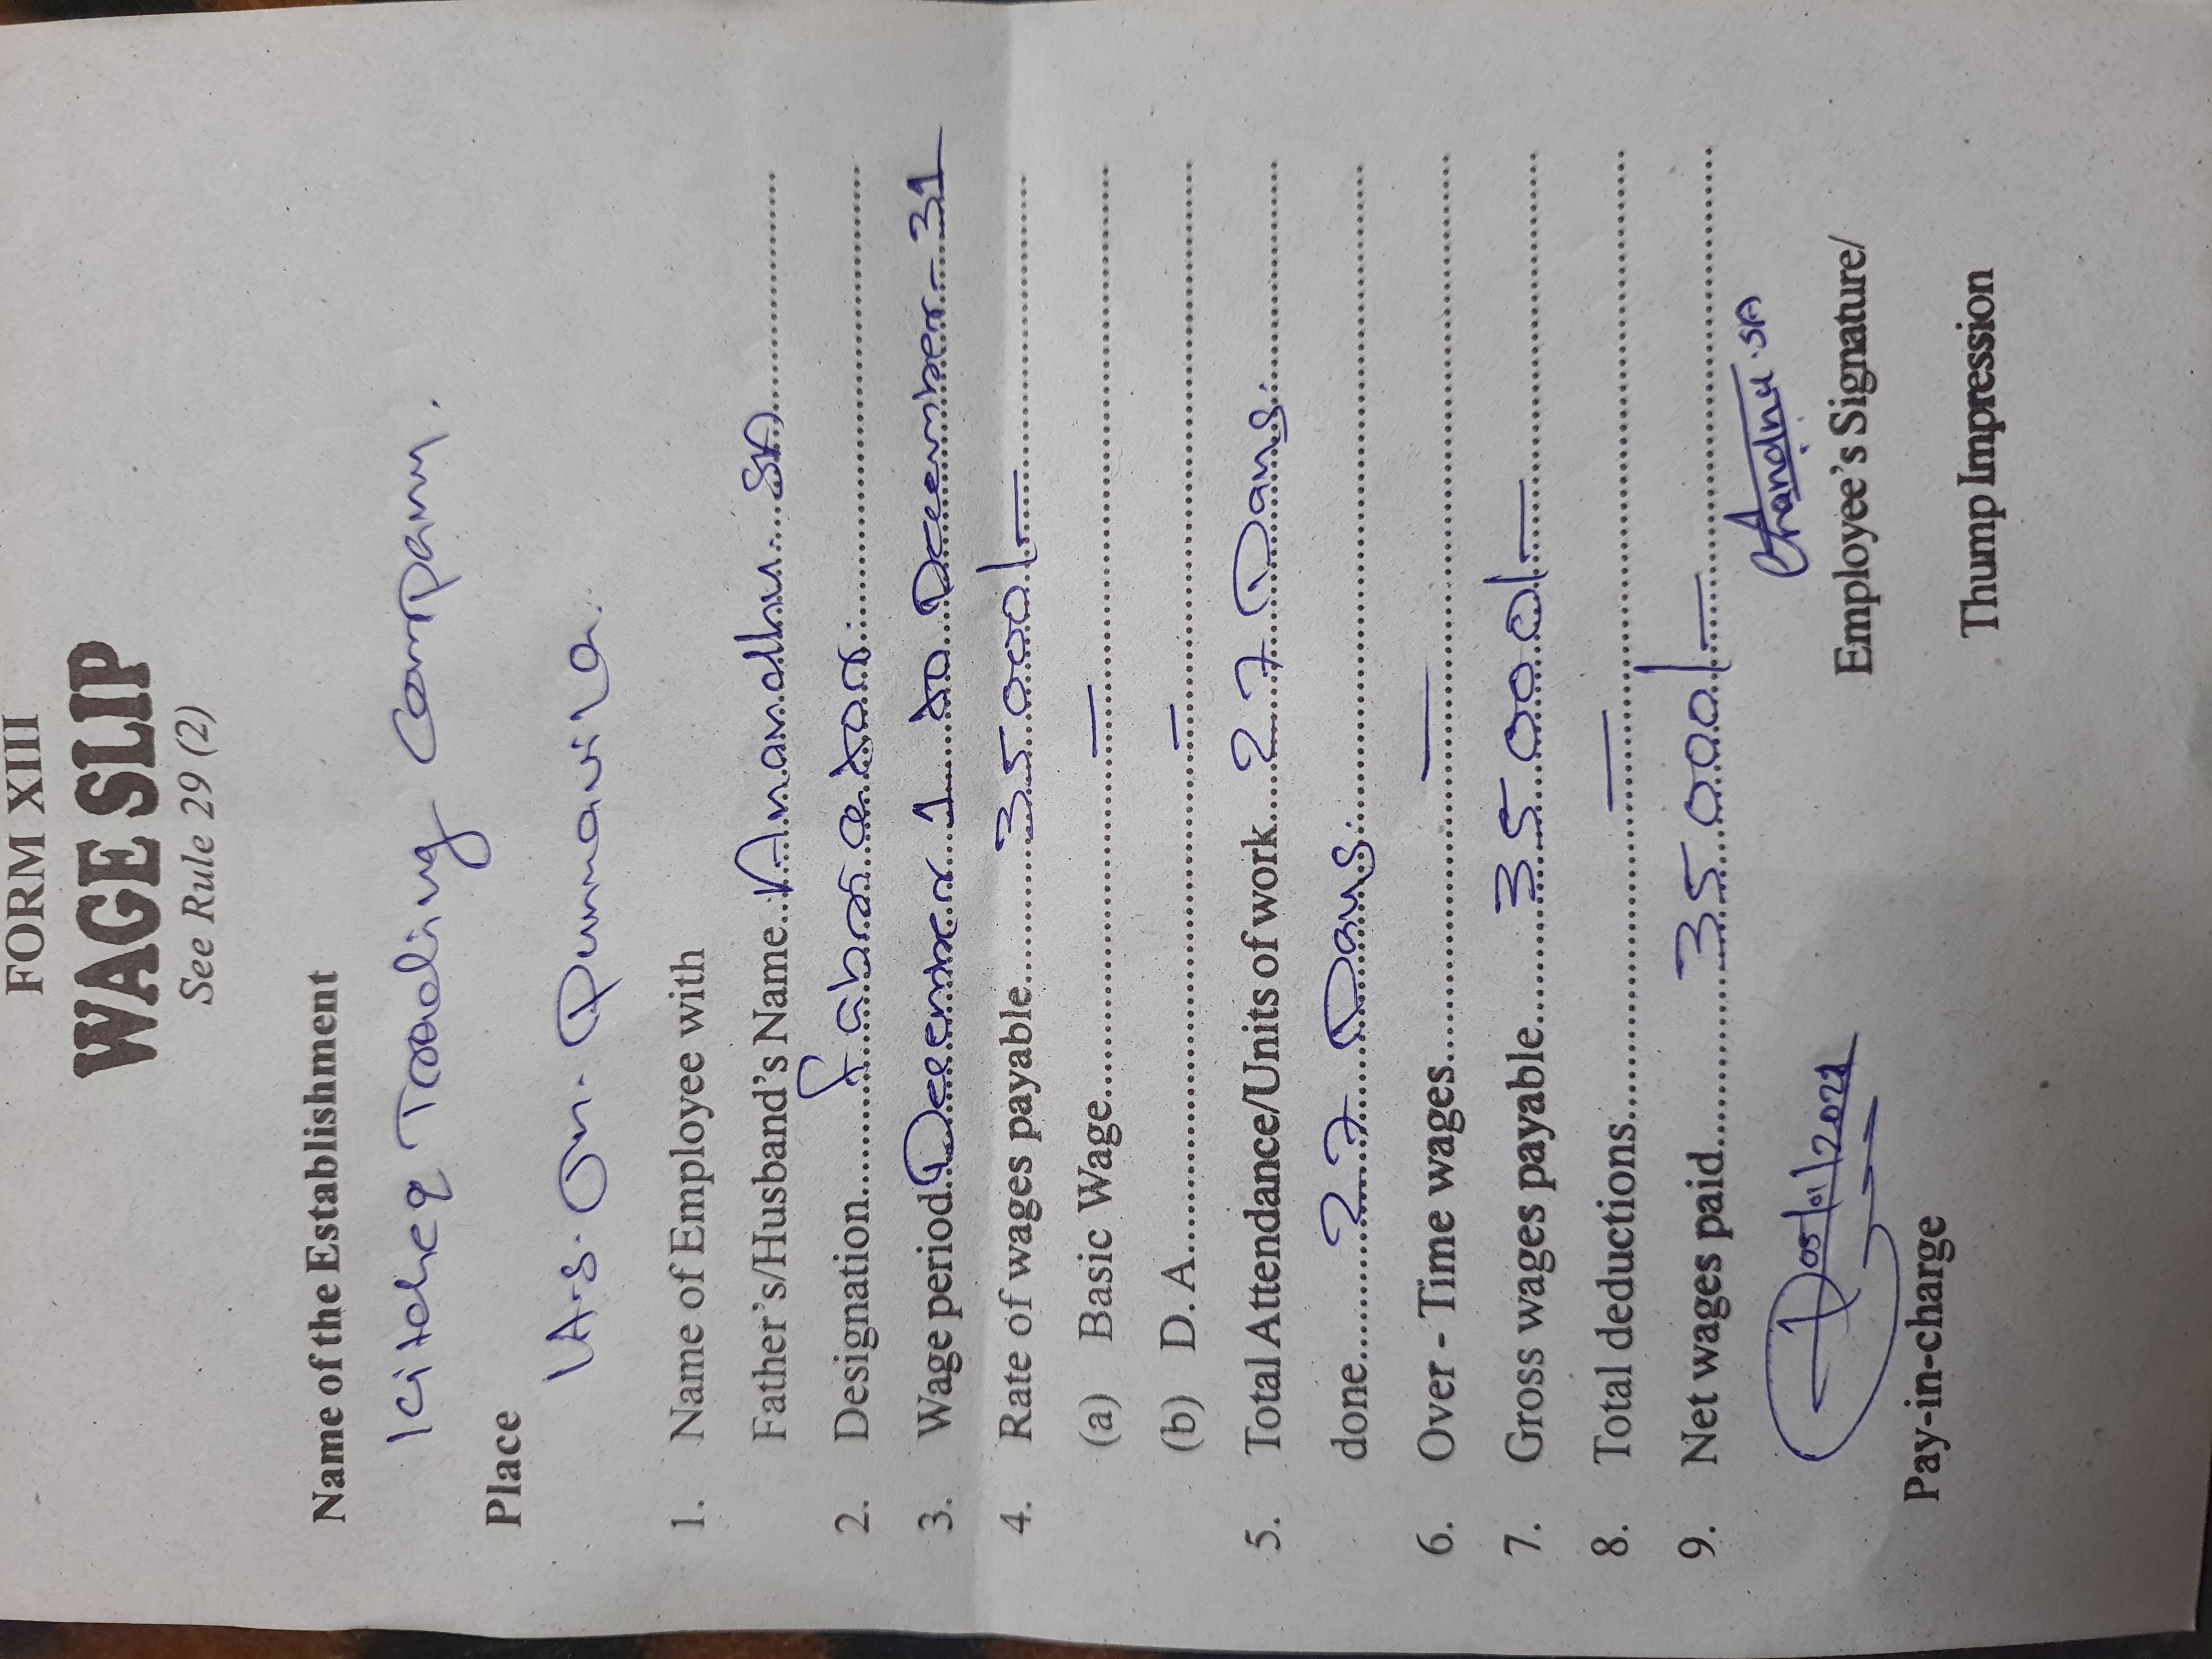 FORM XIII
WAGE SLIP
See Rule 29 (2)
Name of the Establishment
Kitchey Trading Company.
Place
V.S. On. Punnavila.
1. Name of Employee with
Father's/Husband's Name...Anandhu. SA...
2. Designation...Fabricator...
3. Wage period December 1 to December 31
4. Rate of wages payable...35000/-...
(a) Basic Wage...—...
(b) D. A...—...
5. Total Attendance/Units of work...27 Days...
done...27 Days...
6. Over - Time wages...—...
7. Gross wages payable...35000/-...
8. Total deductions...—...
9. Net wages paid...35000/-...
05/01/2021
Anandhu.SA
Pay-in-charge
Employee's Signature/
Thump Impression